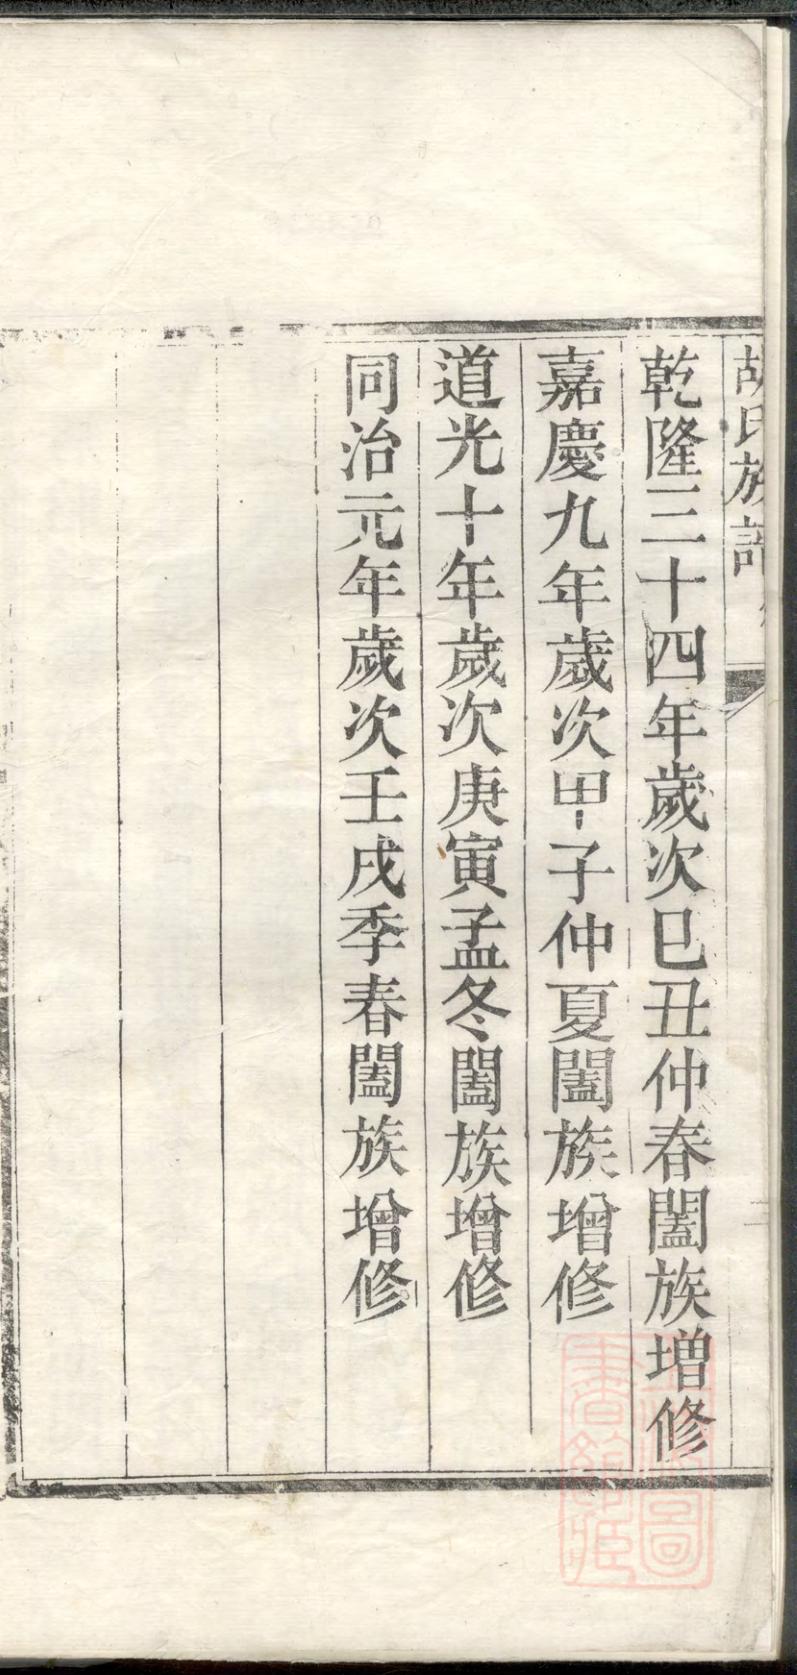 胡氏族譜
乾隆三十四年歲次巳丑仲春闔族增修
嘉慶九年歲次甲子仲夏闔族增修
道光十年歲次庚寅孟冬闔族增修
同治元年歲次壬戌季春闔族增修